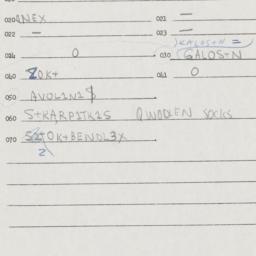 020 ANEX 021 —
022 — 023 —
KALOS+N =
024 0 030 GALOS+N
040 ZOK+ 041 0
050 AVOL1N1$
060 S+KARP1TK1S WOOLEN SOCKS
070 OK+BENDL3X
2